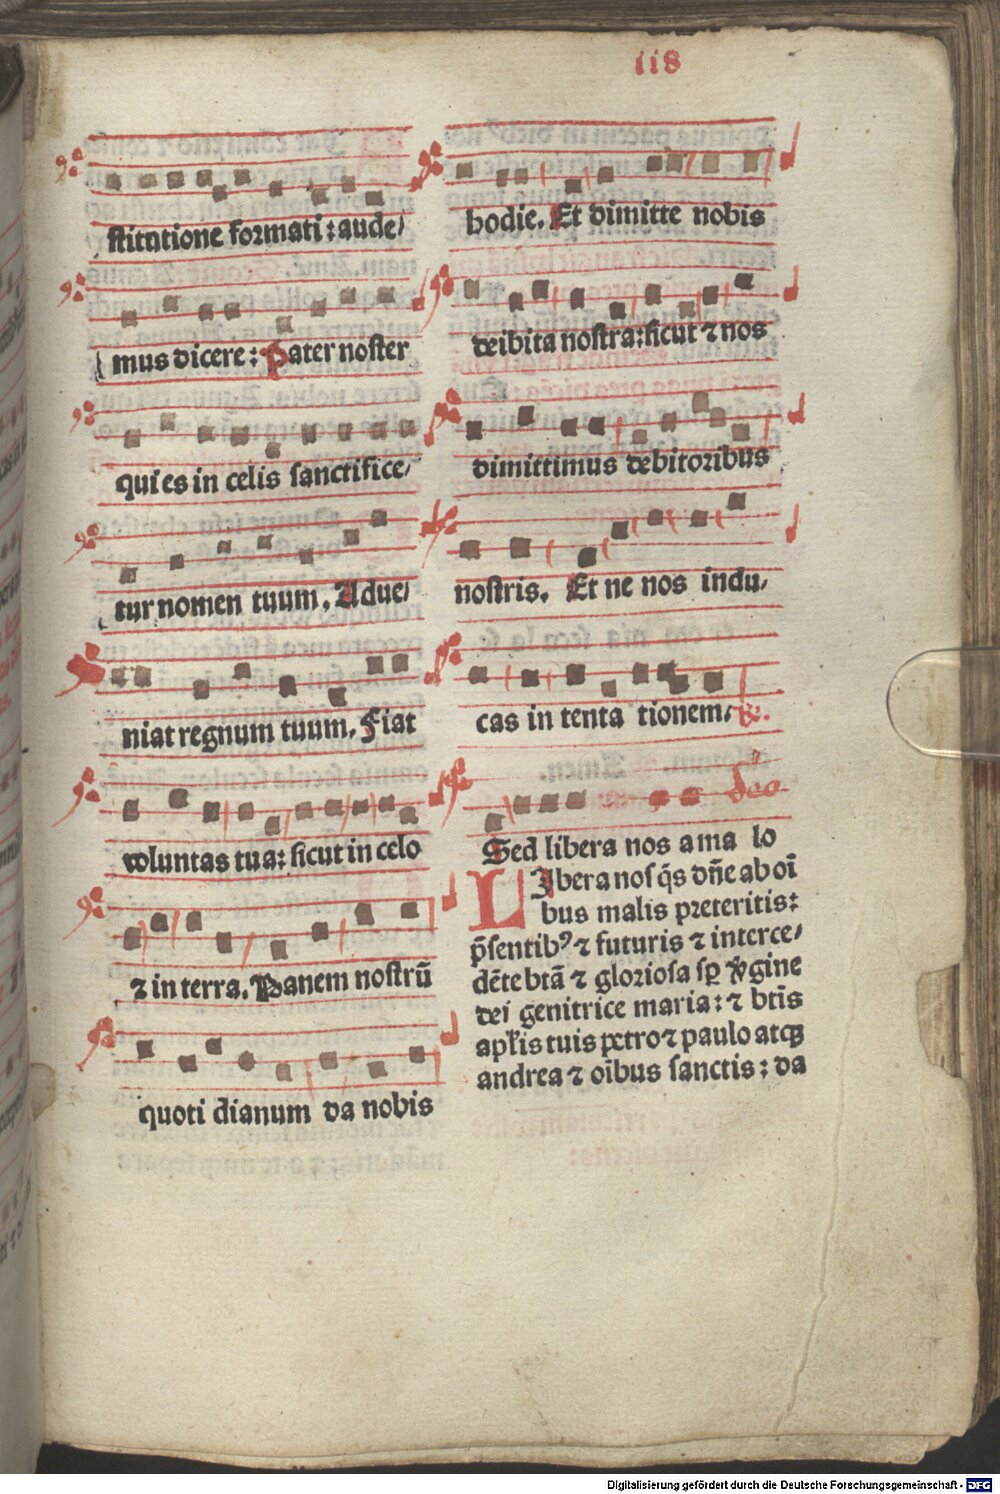 118
stitutione formati : aude/
mus dicere : Pater noster
qui es in celis sanctifice/
tur nomen tuum. Adue/
niat regnum tuum. Fiat
voluntas tua: sicut in celo
⁊ in terra. Panem nostrū
quoti dianum da nobis
hodie. Et dimitte nobis
debita nostra: sicut ⁊ nos
dimittimus debitoribus
nostris. Et ne nos indu/
cas in tenta tionem.
Sed libera nos a ma lo
LIbera nos q̄s dn̄e ab oī
bus malis preteritis:
p̄sentibꝰ ⁊ futuris ⁊ interce/
dēte btā ⁊ gloriosa sp̄ v̄gine
dei genitrice maria: ⁊ btīs
apl̄is tuis petro ⁊ paulo atqꝫ
andrea ⁊ oībus sanctis: da
Digitalisierung gefördert durch die Deutsche Forschungsgemeinschaft - DFG